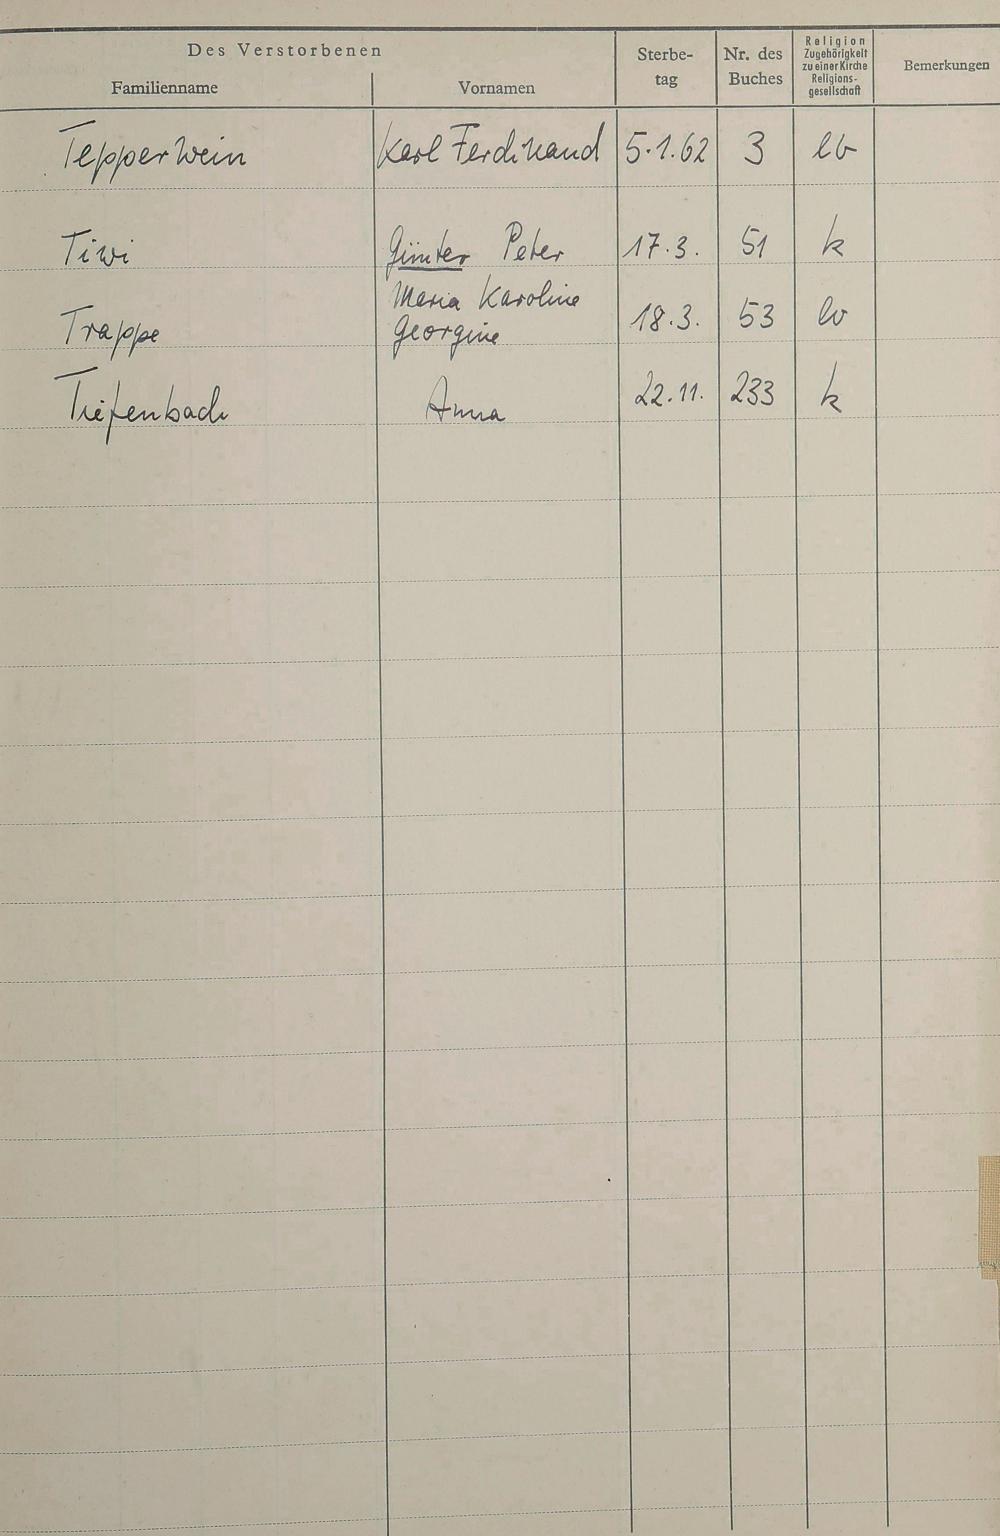 Des Verstorbenen
Familienname
Vornamen
Sterbe-
tag
Nr. des
Buches
Religion
Zugehörigkeit
zu einer Kirche
Religions-
gesellschaft
Bemerkungen
Tepperwein Karl Ferdinand 5.1.62 3 ev
Tiwi Günter Peter 17.3. 51 k
Maria Karoline
Trappe Georgine 18.3. 53 ev
Tiefenbach Anna 22.11. 233 k